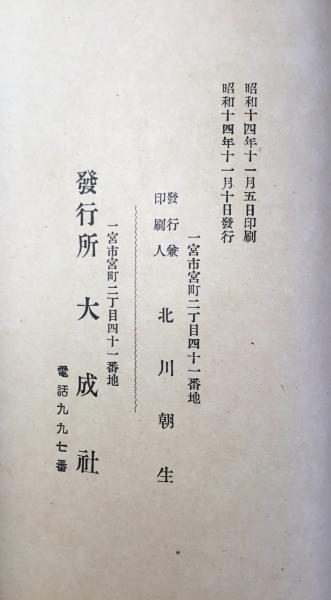 昭和十四年十一月五日印刷
昭和十四年十一月十日發行
一宮市宮町二丁目四十一番地
發行兼
印刷人
北川朝生
一宮市宮町二丁目四十一番地
發行所 大成社
電話九九七番